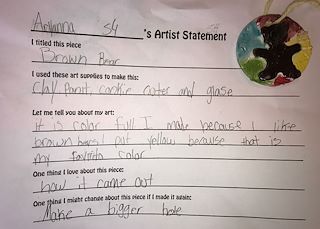 Aryanna S4 's Artist Statement
I titled this piece
Brown Bear
I used these art supplies to make this:
Clay Paint, cookie cuter and glase
Let me tell you about my art:
It is color full I made because I like
brown bears I put yellow because that is
my favrito color
One thing I love about this piece:
how it came out
One thing I might change about this piece if I made it again:
Make a bigger hole